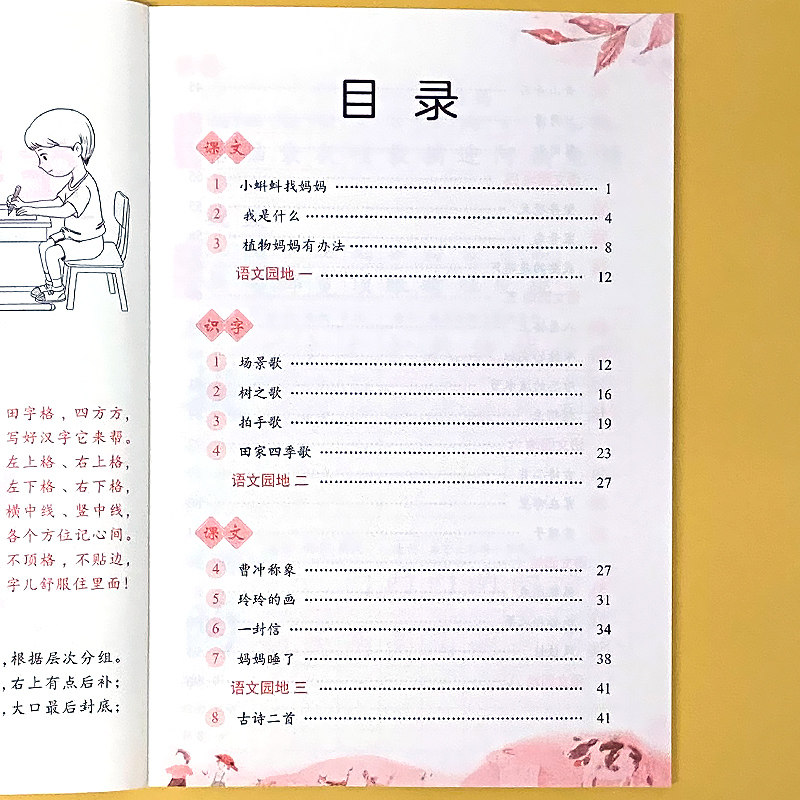 田字格，四方方，
写好汉字它来帮。
左上格、右上格，
左下格、右下格，
横中线、竖中线，
各个方位记心间。
不顶格，不贴边，
字儿舒服住里面！
，根据层次分组。
，右上有点后补；
，大口最后封底；
目录
课文
1 小蝌蚪找妈妈 1
2 我是什么 4
3 植物妈妈有办法 8
语文园地 一 12
识字
1 场景歌 12
2 树之歌 16
3 拍手歌 19
4 田家四季歌 23
语文园地 二 27
课文
4 曹冲称象 27
5 玲玲的画 31
6 一封信 34
7 妈妈睡了 38
语文园地 三 41
8 古诗二首 41